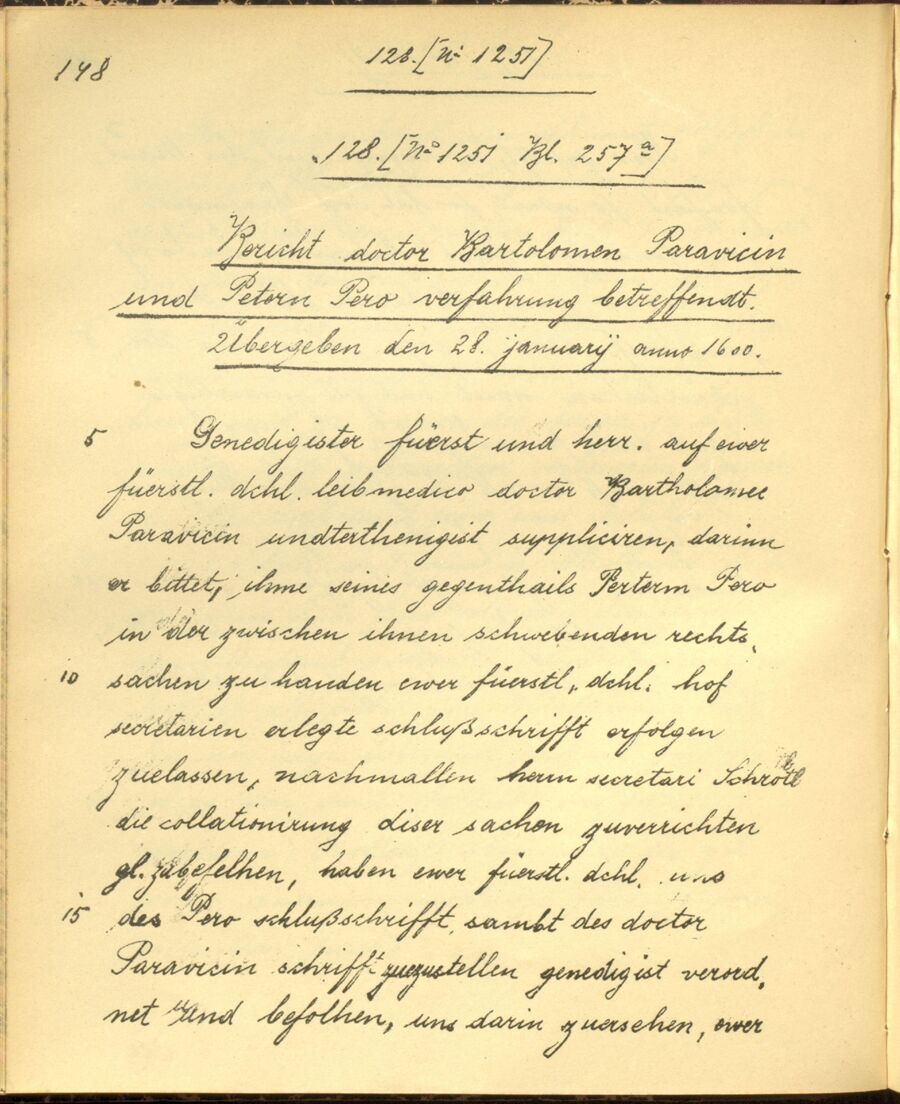 148
128. [No 1251]
128. [No 1251 Bl. 257a]
Bericht doctor Bartolomen Paravicin
und Petern Pero verfahrung betreffendt.
Übergeben den 28. januarÿ anno 1600.
5 Genedigister füerst und herr. auf ewer
füerstl. dchl. leibmedico doctor Bartholamee
Paravicin undterthenigist suppliciren, darinn
er bittet, ihme seines gegenthails Perterm Pero
in der zwischen ihnen schwebenden rechts,
10 sachen zu handen ewer füerstl. dchl. hof
secretarien erlegte schlußschrifft erfolgen
zuelassen, nachmallen herrn secretari Schrötl
die collationirung diser sachen zuverrichten
gl. zubefelhen, haben ewer füerstl. dchl. uns
15 des Pero schlußschrifft, sambt des doctor
Paravicin schrifft zuezustellen genedigist verord,
net und befolhen, uns darin zuersehen, ewer